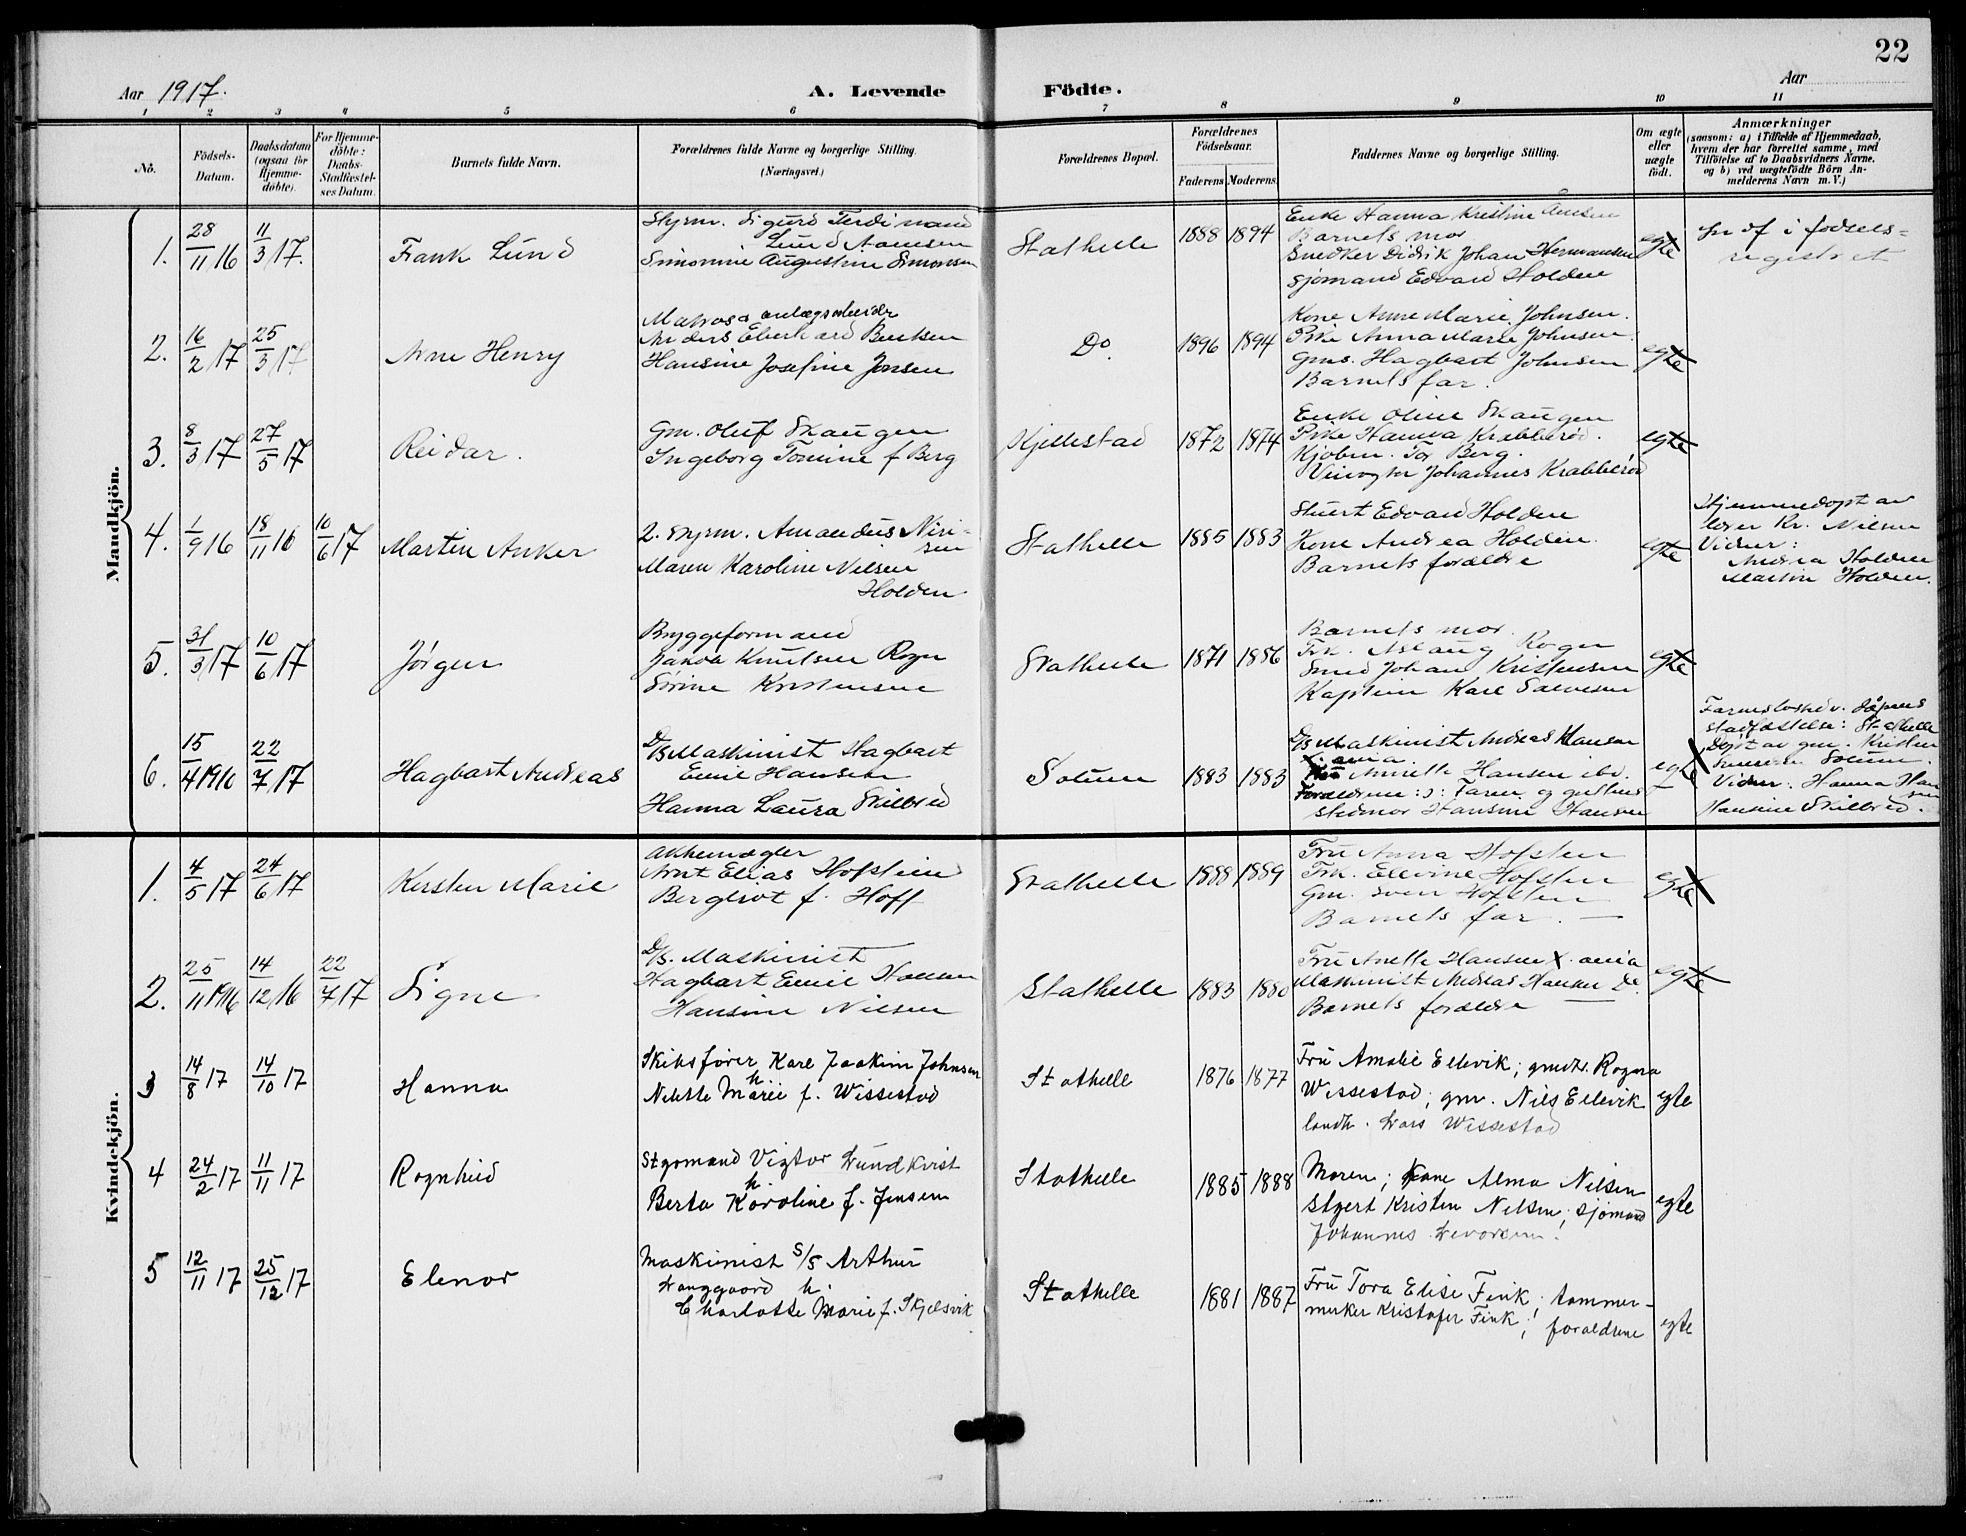 22
Aar 1917.
A. Levende Födte.
Aar
1 2 3 4 5 6 7 8 9 10 11
No.
Födsels-Datum.
Daabsdatum (ogsaa for Hjemme-döbte).
For Hjemme-döbte: Daabs-Stadfæstel-ses Datum.
Barnets fulde Navn.
Forældrenes fulde Navne og borgerlige Stilling.
(Næringsvei.)
Forældrenes Bopæl.
Forældrenes Födselsaar.
Faderens Moderens
Faddernes Navne og borgerlige Stilling.
Om ægte eller uægte födt.
Anmærkninger
(saasom: a) i Tilfælde af Hjemmedaab,
hvem der har forrettet samme, med
Tilföielse af to Daabsvidners Navne.
og b) ved uægtefödte Börn An-
melderens Navn m. V.)
Mandkjön.
1. 28/11 16 11/3 17. Frank Lund
Styrm. Sigurd Ferdinand
Lund Aamsen
Simonine Augustine Simonsen
Stathelle 1888 1894
Enke Hanna Kristine
Barnets mor
Snedker Didrik Johan Hermansen
Sjømand Edvard Holden
egte
i fødsels=
registret
2. 16/2 17 25/3 17 Arne Henry
Matros & anlægsarbeider
Anders Eberhard Bentsen
Hansine Josefine Jonsen
Do. 1896 1894
Kone Anne Marie Johnsen.
Pike Anna Marie Johnsen.
Gms. Hagbart Johnsen
Barnets far.
egte
3. 8/3 17 27/5 17 Reidar.
Gm. Oluf Skaugen
Ingeborg Tomine f Berg
Kjellestad 1872 1874
Enke Oline Skaugen
Pike Hanna Krabberød.
Kjøbm. Tor Berg.
Johannes Krabberød
egte
4. 1/9 16 18/11 16 10/6 17 Martin Anker
2. Styrm. Amandus
Maren Karoline Nilsen
Holden
Stathelle 1885 1883
Stuert Edvard Holden
Kone Andrea Holden.
Barnets forældre
egte
Hjemmedøpt av
lærer Kr. Nilsen
Vidner:
Andrea Holden
Martin Holden.
5. 31/3 17 10/6 17 Jørgen
Bryggeformand
Jakob Knutsen Rogn
Sørine Kristensen
Stathelle 1871 1886
Barnets mor.
Frk. Aslaug Rogn
Smed Johan Kristensen
Kaptein Karl Salvesen
egte
6. 15/4 1910 22/7 17 Hagbart Andreas
D/S Maskinist Hagbart
Emil Hansen
Hanna Laura Skilbred
Solum 1883 1883
D/S Maskinist Andreas Hansen
Anette Hansen ibd.
Forældrene: Faren og
stedmor Hansine Hansen
egte
stadfæstelse: Stathelle
Døpt av gm. Kristen
Solum.
Vidner: Hanna Hansen
Hansine Skilbred.
Kvindekjön.
1. 4/5 17 24/6 17 Kirsten Marie
Arnt Elias Hofsten
Bergliot f. Hoff
Stathelle 1888 1889
Fru Anna Hofsten
Frk. Ellevine Hofsten
Gm. Sven Hofsten
Barnets far.
egte
2. 25/11 1916 14/12 16 22/7 17 Signe
D/S. Maskinist
Hagbart Emil Hansen
Hansine Nilsen
Stathelle 1883 1880
Fru Anette Hansen
Maskinist Andreas Hansen Do.
Barnets forældre
egte
3 14/8 17 14/10 17 Hanna
Skibsfører Karl Joakim Johnsen
h.
Nilette Marie f. Wissestad
Stathelle 1876 1877
Fru Amalie Ellevik; gmdtr. Ragna
Wissestad; gm. Nils Ellevik
landh. Lars Wissestad
egte
4 24/2 17 11/11 17 Ragnhild
Styrmand Viktor Lundkvist
h.
Berta Karoline f. Jensen
Stathelle 1885 1888
Moren; Kone Alma Nilsen
Styert Kristen Nilsen; sjømand
Johannes
egte
5 12/11 17 25/12 17 Elenor
Maskinist S/S Arthur
Langgaard h.
Charlotte Marie f. Skjelsvik
Stathelle 1881 1887
Fru Tora Elise Fink; tømmer-
merker Kristofer Fink; forældrene
egte